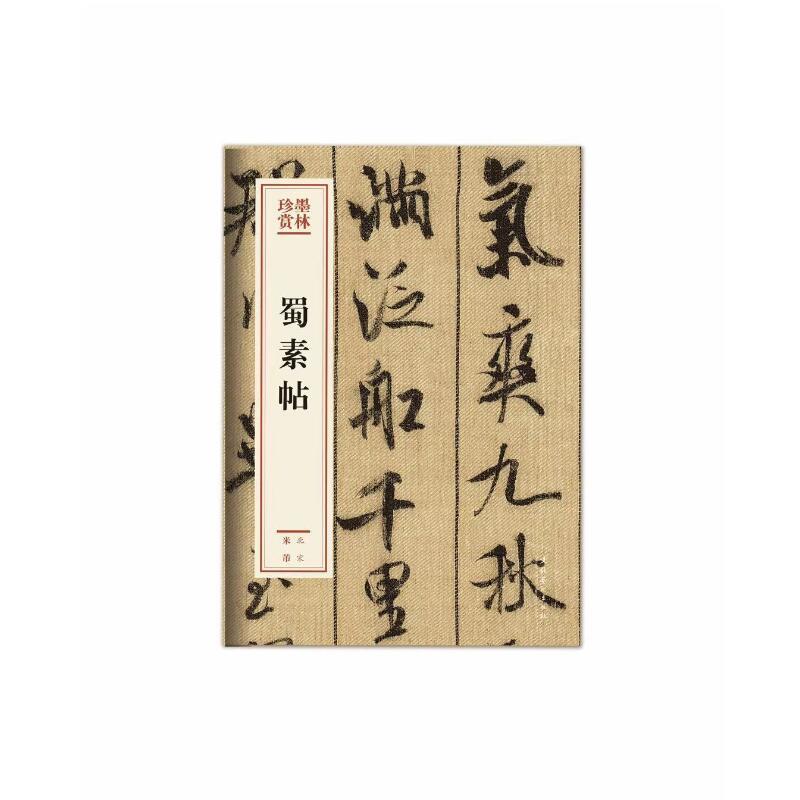 墨林
珍赏
蜀素帖
北宋
米芾
氣爽九秋
满泛船千里